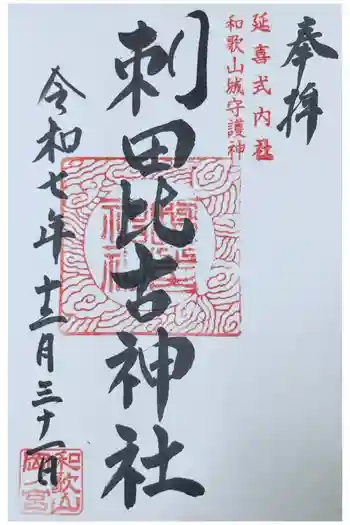 奉拝
延喜式内社
和歌山城守護神
刺田比古神社
令和七年十二月三十一日
和歌山
岡の宮